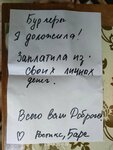 Бургеры
Я доложила!
Заплатила из
своих личных
денег.
Всего вам Доброго
♡ Ростикс, Баре